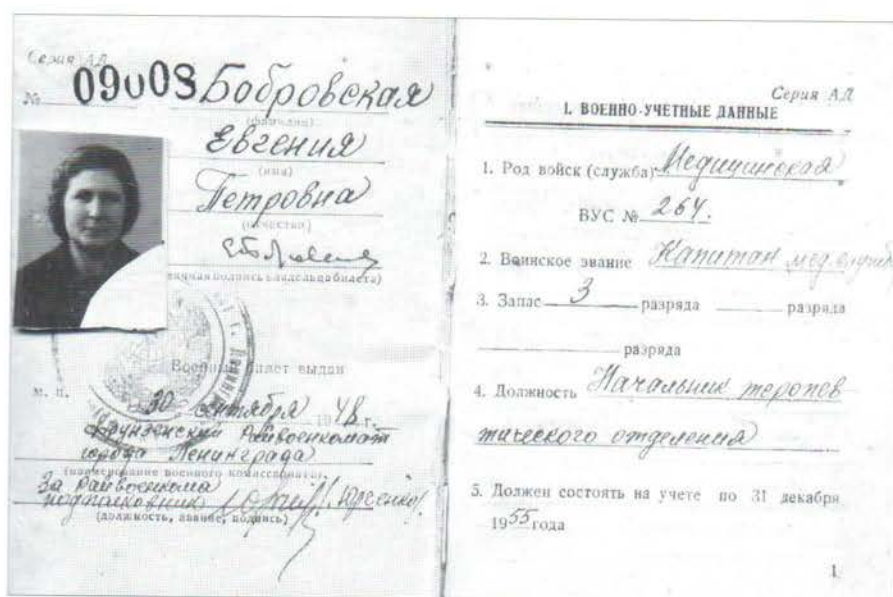 Серия АД
№ 09008 Бобровская
(фамилия)
Евгения
(имя)
Петровна
(отчество)
(личная подпись владельца билета)
Военный билет выдан
М. П.
30 сентября 1948 г.
Фрунзенский Райвоенкомат
города Ленинграда
(наименование военного комиссариата)
За Райвоенкома
подполковник
(должность, звание, подпись)
Серия АД
I. ВОЕННО-УЧЕТНЫЕ ДАННЫЕ
1. Род войск (служба) Медицинская
ВУС № 264.
2. Воинское звание Капитан мед.
3. Запас 3 разряда разряда
разряда
4. Должность Начальник терапев
тического отделения
5. Должен состоять на учете по 31 декабря
1955 года
1